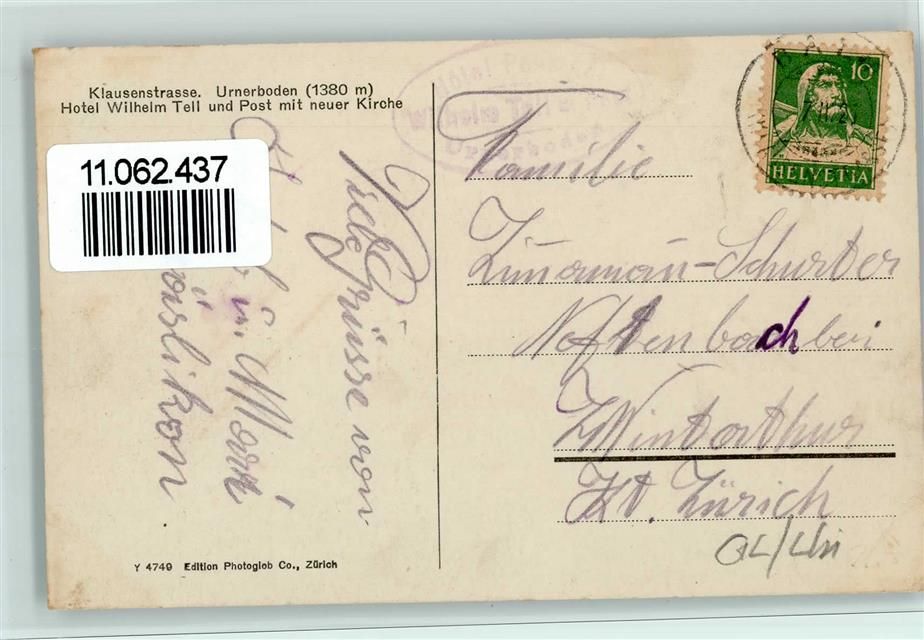 Klausenstrasse. Urnerboden (1380 m)
Hotel Wilhelm Tell und Post mit neuer Kirche
11.062.437
Hôtel
Wilhelm Tell
Urnerboden
10
HELVETIA
Familie
Zimmermann-Schurter
Neftenbach bei
Winterthur
Kt. Zürich
GL/Uri
Viele Grüsse von
u. Mari
Y 4749 Edition Photoglob Co., Zürich